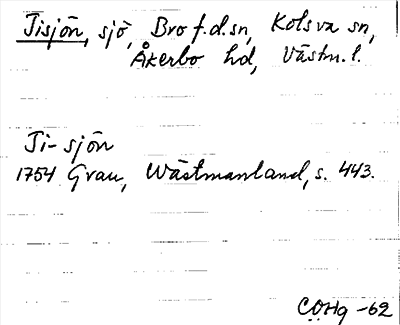 Tisjön, sjö, Bro f.d.sn, Kolsva sn,
Åkerbo hd, Västm.l.
Ti-sjön
1754 Grau, Wästmanland, s. 443.
COHg -62